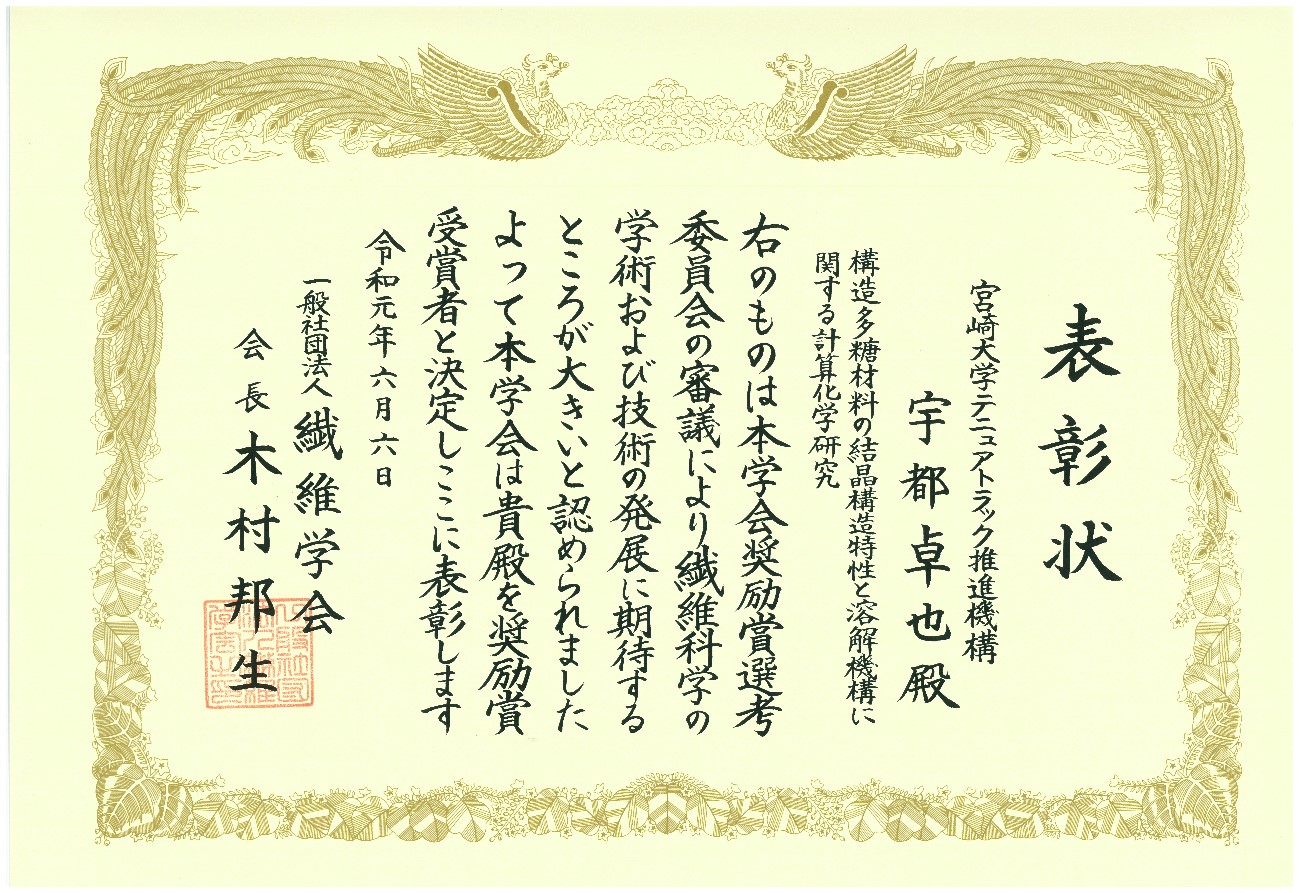 表彰状
宮崎大学テニュアトラック推進機構
宇都卓也殿
構造多糖材料の結晶構造特性と溶解機構に
関する計算化学研究
右のものは本学会奨励賞選考
委員会の審議により繊維科学の
学術および技術の発展に期待する
ところが大きいと認められました
よって本学会は貴殿を奨励賞
受賞者と決定しここに表彰します
令和元年六月六日
一般社団法人 繊維学会
会長 木村邦生